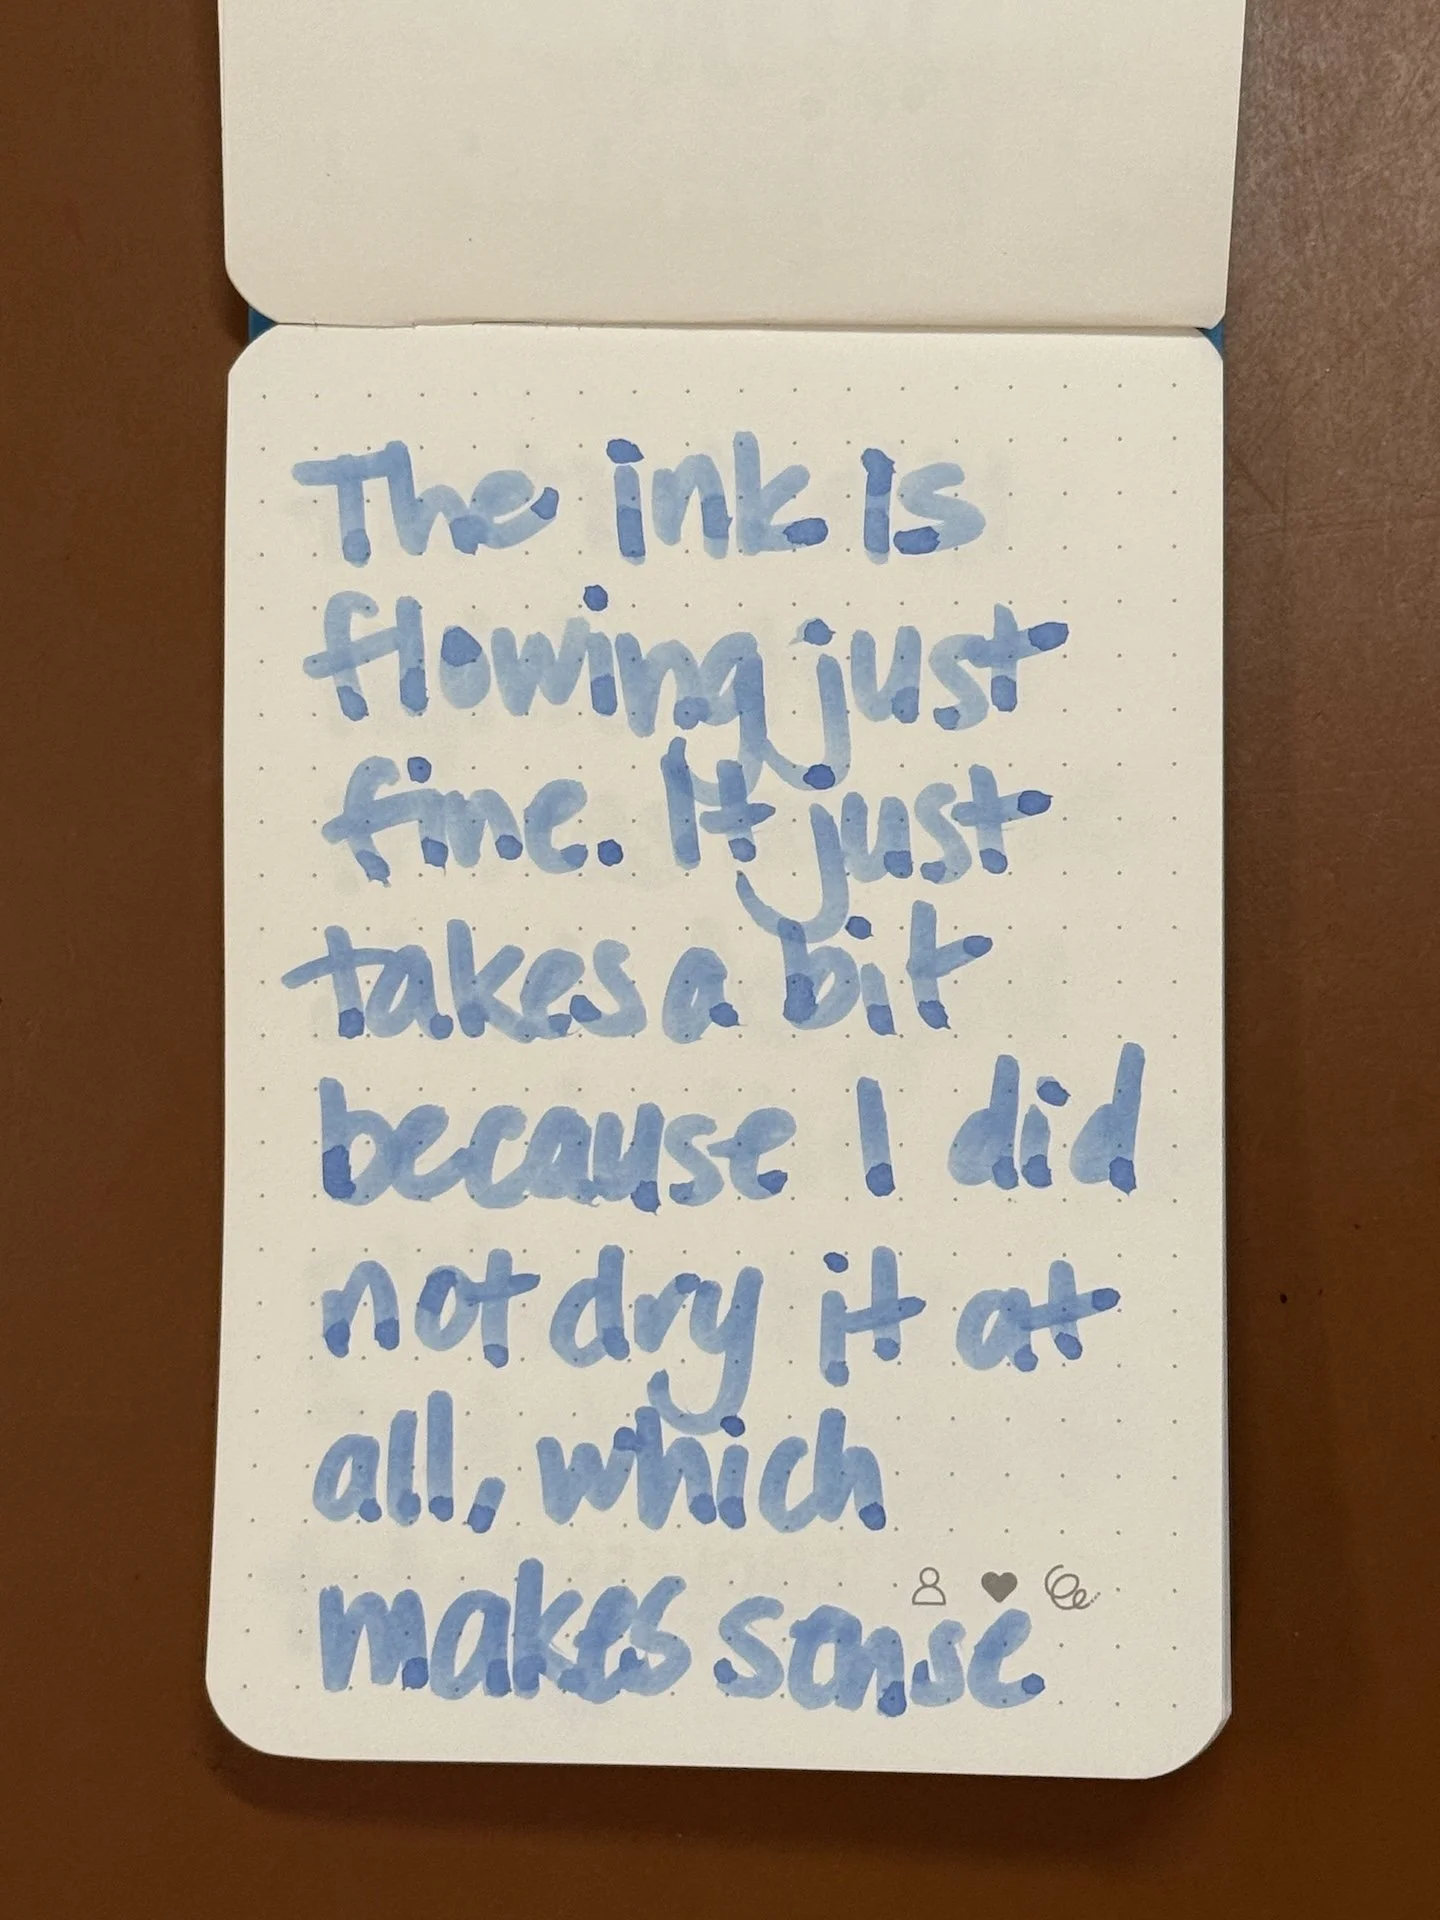 The ink is
flowing just
fine. It just
takes a bit
because I did
not dry it at
all, which
makes sense